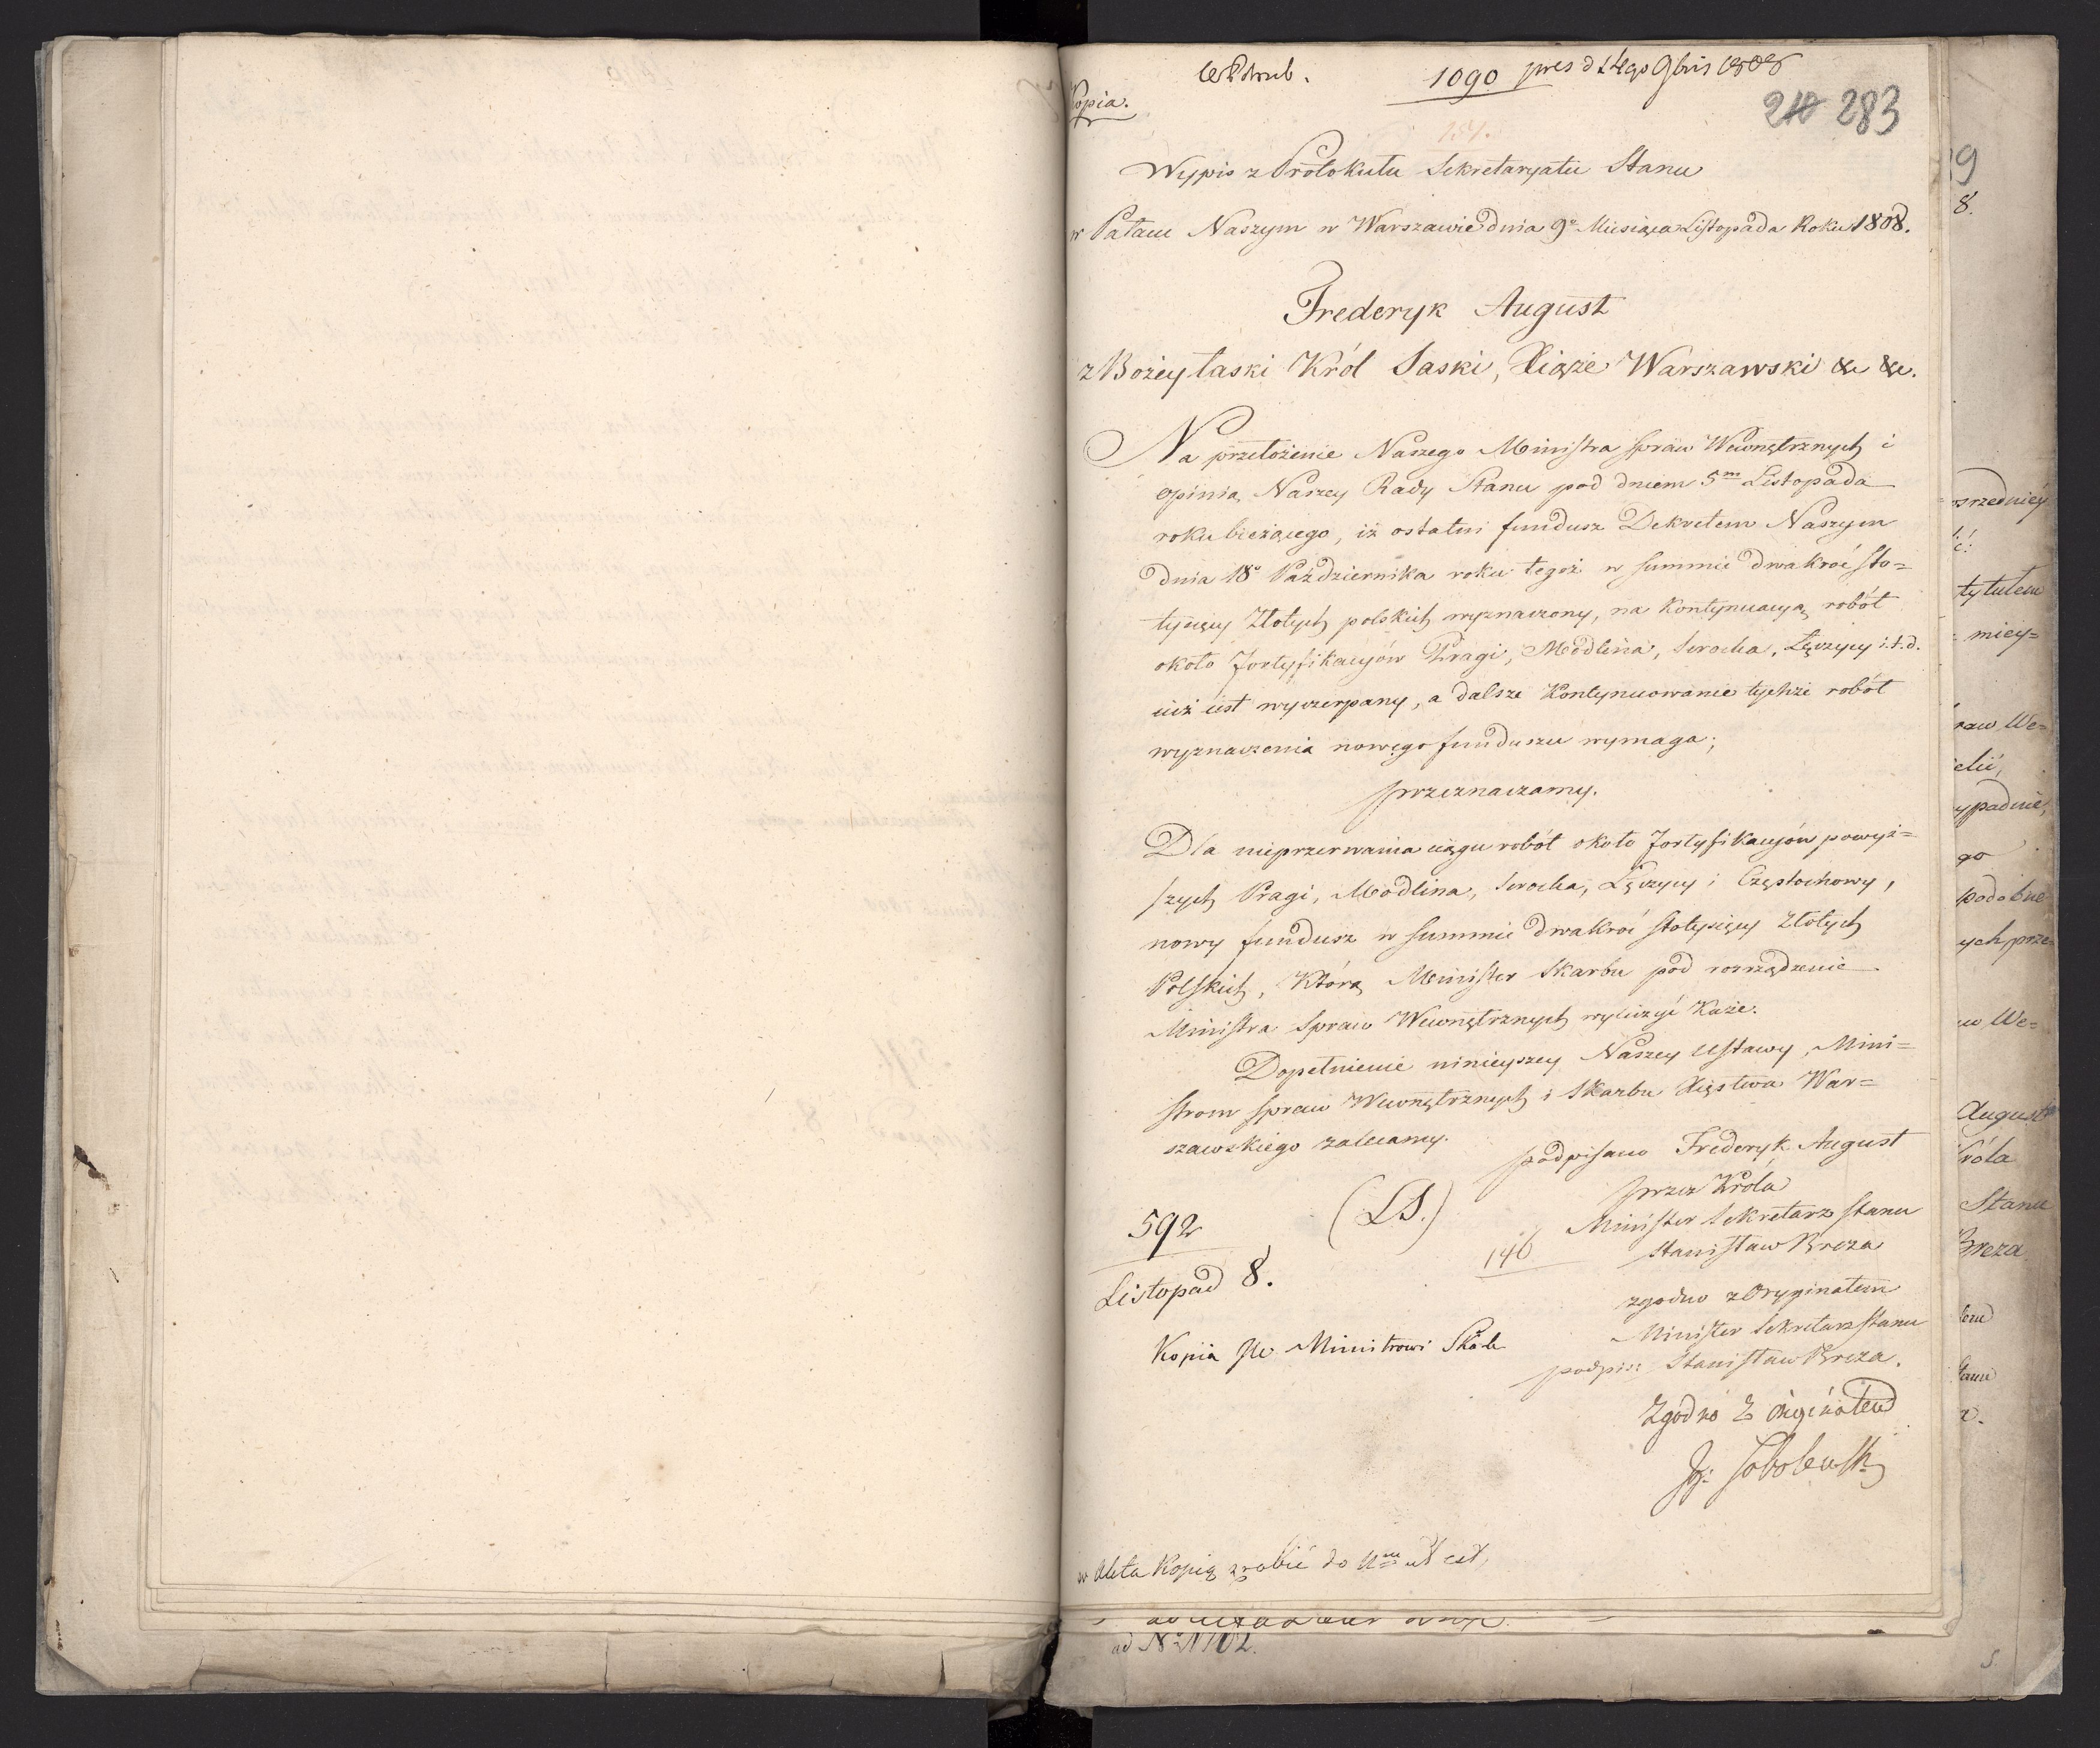 1090 pres d 14go 9bris 1808
Kopia.
210 283
Wypis z Protokułu Sekretaryatu Stanu
w Pałacu Naszym w Warszawie dnia 9o Miesiąca Listopada Roku 1808.
Frederyk August
z Bożey łaski Król Saski, Xiąże Warszawski &c &c.
Na przełożenie Naszego Ministra spraw Wewnętrznych i
opinią Naszey Rady Stanu pod dniem 5m Listopada
roku bieżącego, iż ostatni fundusz Dekretem Naszym
dnia 18o Października roku tegoż w summie dwakroć sto=
tysięcy Złotych polskich wyznaczony, na kontynuacyą robót
około fortyfikacyów Pragi, Modlina, Serocka, Łęczycy i.t.d.
iuż iest wyczerpany, a dalsze kontynuowanie tychże robót
wyznaczenia nowego funduszu wymaga;
przeznaczamy.
Dla nieprzerwania ciągu robót około fortyfikacyów powyż=
szych Pragi, Modlina, Serocka, Łęczycy i Częstochowy,
nowy fundusz w summie dwakroć stotysięcy złotych
Polskich, którą Minister Skarbu pod rozrządzenie
Ministra Spraw Wewnętrznych wyliczyć każe.
Dopełnienie ninieyszey Naszey Ustawy, Mini=
strom spraw Wewnętrznych i Skarbu Xięstwa War=
szawskiego zalecamy.
podpisano Frederyk August
przez Króla
Minister Sekretarz Stanu
Stanisław Breza
(LS.)
592
146
Listopad 8.
zgodno z Oryginałem
Minister Sekretarz Stanu
podpis: Stanisław Breza.
Kopia Ministrowi Skarbu
Zgodno z Originałem
Sobolewski
w Akta Kopią zrobić do
ad No
9
8.
tytułem
miey=
raw We=
ypadnie,
go
podobne
ych prze=
w We=
August
Króla
Stanu
Breza